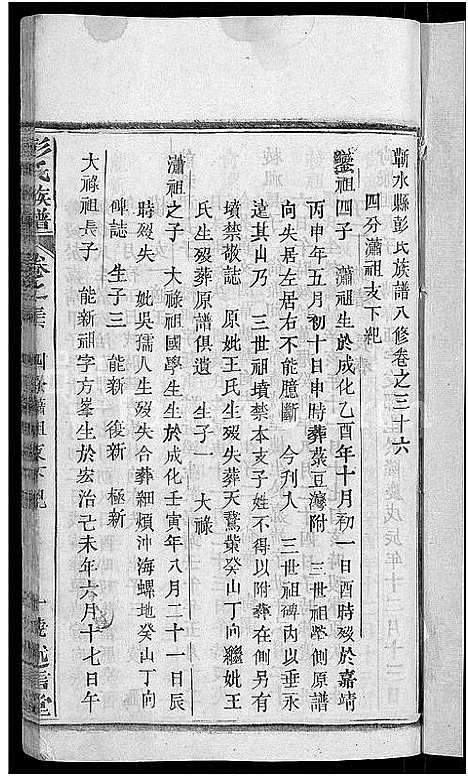 蘄水縣彭氏族譜八修卷之三十六
四分瀟祖支下紀
鑾祖四子　瀟祖生於成化乙酉年十月初一日酉時歿於嘉靖
丙申年五月初十日申時葬菉豆灣附　三世祖塋側原譜
向失居左居右不能臆斷　今刋入　三世祖碑內以垂永
遠其山乃　三世祖墳禁本支子姓不得以附葬在側另有
墳禁敬誌　原妣王氏生歿失葬天鵞葉癸山丁向繼妣王
氏生歿葬原譜俱遺　生子一　大祿
瀟祖之子　大祿祖國學生生於成化壬寅年八月二十一日辰
時歿失　妣吳孺人生歿失合葬細煩沖海螺地癸山丁向
碑誌　生子三　能新　復新　極新
大祿祖長子　能新祖字方峯生於宏治己未年六月十七日午
彭氏族譜　卷之三六　四分瀟祖支下紀　一　述信堂